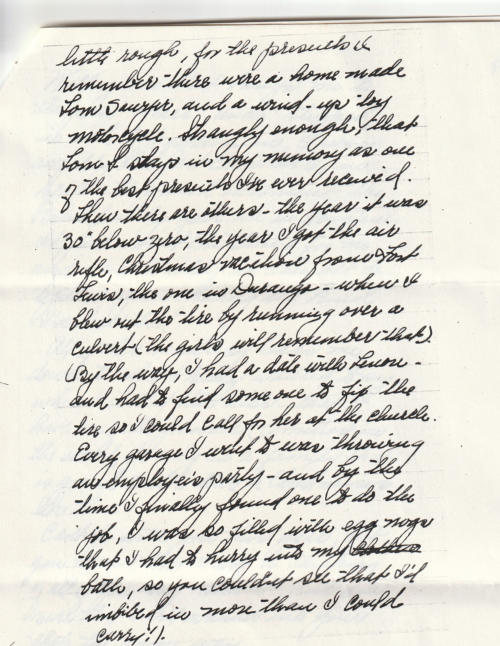 little rough, for the presents I
remember there were a home made
Tom Sawyer, and a wind-up toy
motorcycle. Strangly enough, that
Tom S stays in my memory as one
of the best presents I've ever received.
Then there are others - the year it was
30° below zero, the year I got the air
rifle, Christmas vacation from Fort
Lewis, the one in Durango - when I
blew out the tire by running over a
culvert (the girls will remember that).
(By the way, I had a date with Lenon -
and had to find some one to fix the
tire so I could call for her at the church.
Every garage I went to was throwing
an employe's party - and by the
time I finally found one to do the
job, I was so filled with egg nogs
that I had to hurry into my
bath, so you couldn't see that I'd
imbibed in more than I could
carry!).